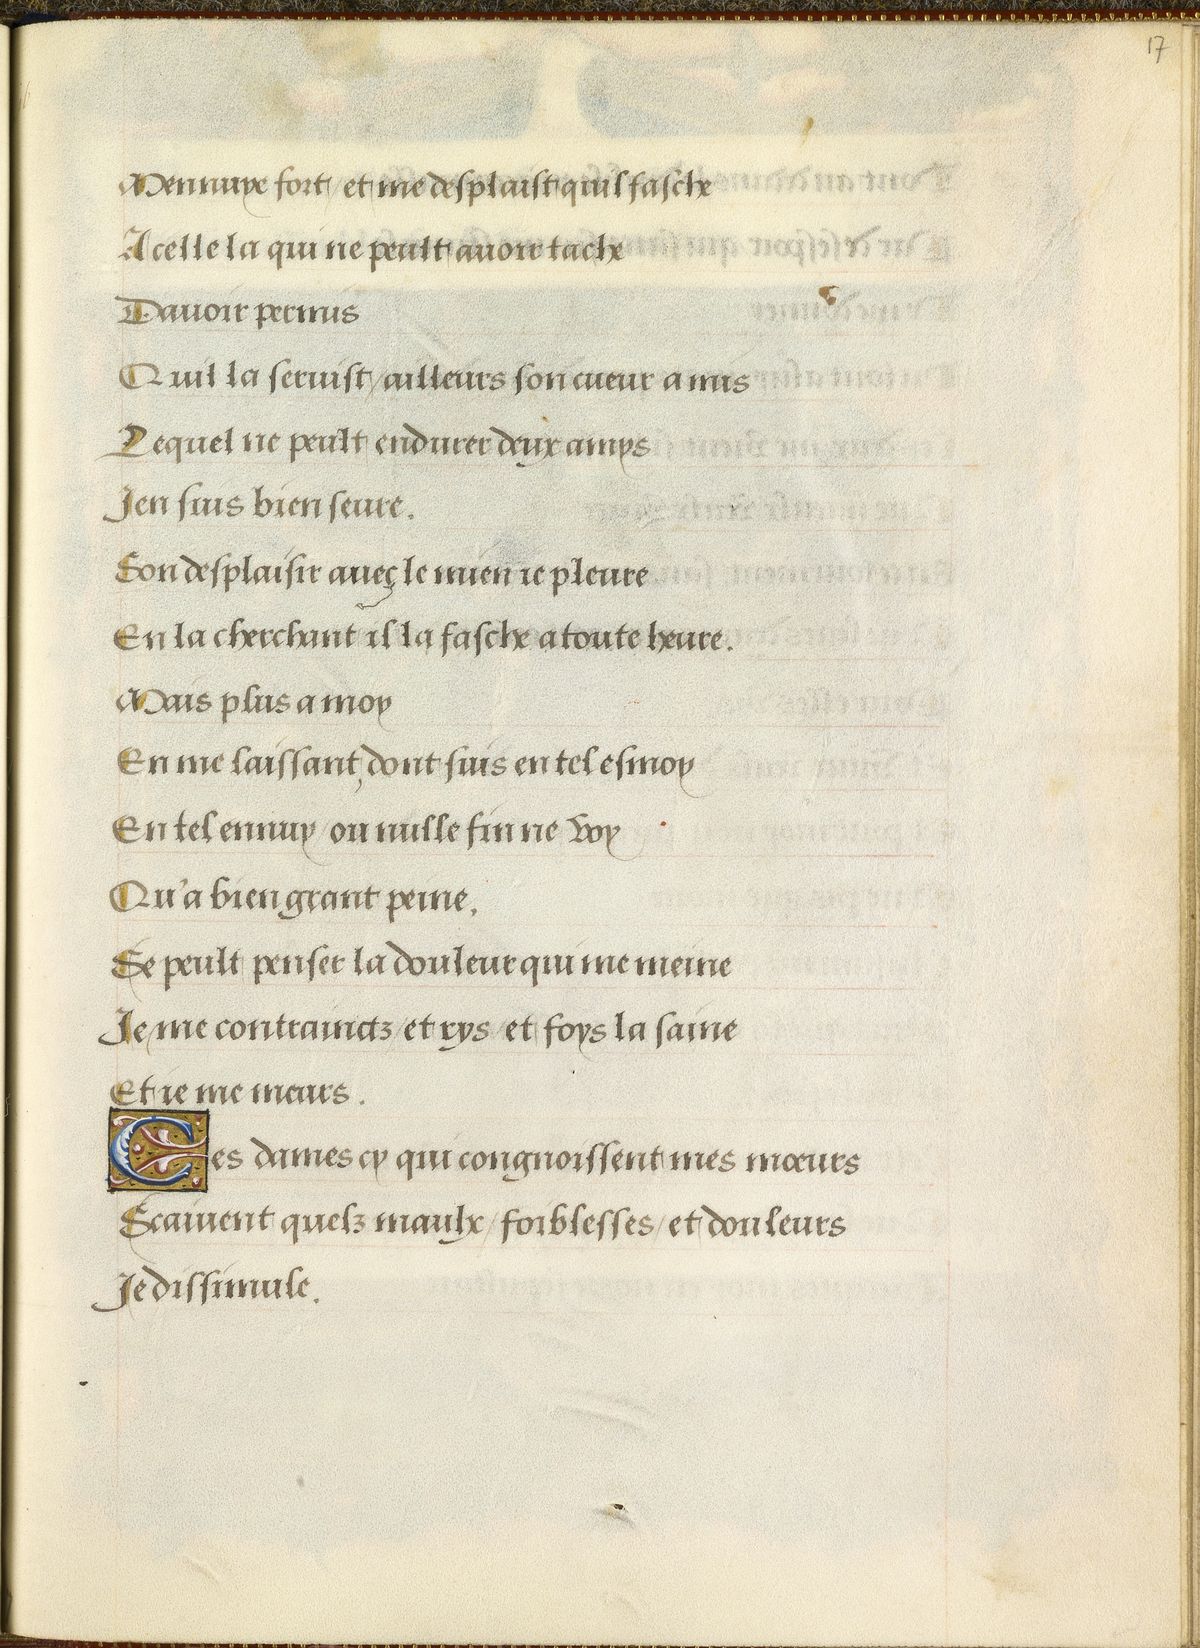 17
Mennuye fort / et me desplaist quil fasche
A celle la qui ne peult auoir tache
Dauoir permis
Quil la seruist / ailleurs son cueur a mis
Lequel ne peult endurer deux amys
Jen suis bien seure.
Son desplaisir auec le mien ie pleure
En la cherchant il la fasche a toute heure.
Mais plus a moy
En me laissant, dont suis en tel esmoy
En tel ennuy / ou nulle fin ne voy
Qu'a bien grant peine,
Se peult penser la douleur qui me meine
Je me contrainctz / et rys / et foys la saine
Et ie me meurs.
Ces dames cy qui congnoissent mes mœurs
Scaiuent quelz maulx / foiblesses / et douleurs
Je dissimule.